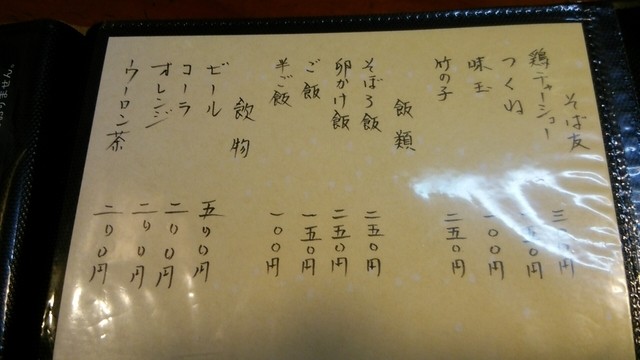 そば友
鶏チャーシュー 三〇〇円
つくね 五〇円
味玉 一〇〇円
竹の子 二五〇円
飯類
そぼろ飯 二五〇円
卵かけ飯 二五〇円
ご飯 一五〇円
半ご飯 一〇〇円
飲物
ビール 五〇〇円
コーラ 二〇〇円
オレンジ 二〇〇円
ウーロン茶 二〇〇円
おりません。